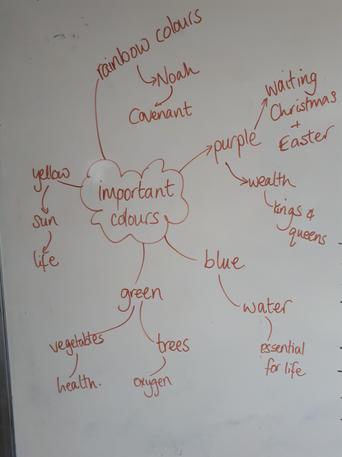 rainbow colours
Noah
Covenant
waiting
Christmas
+
Easter
purple
wealth
kings &
queens
important
colours
yellow
sun
life
blue
water
essential
for life
green
vegetables
health.
trees
oxygen